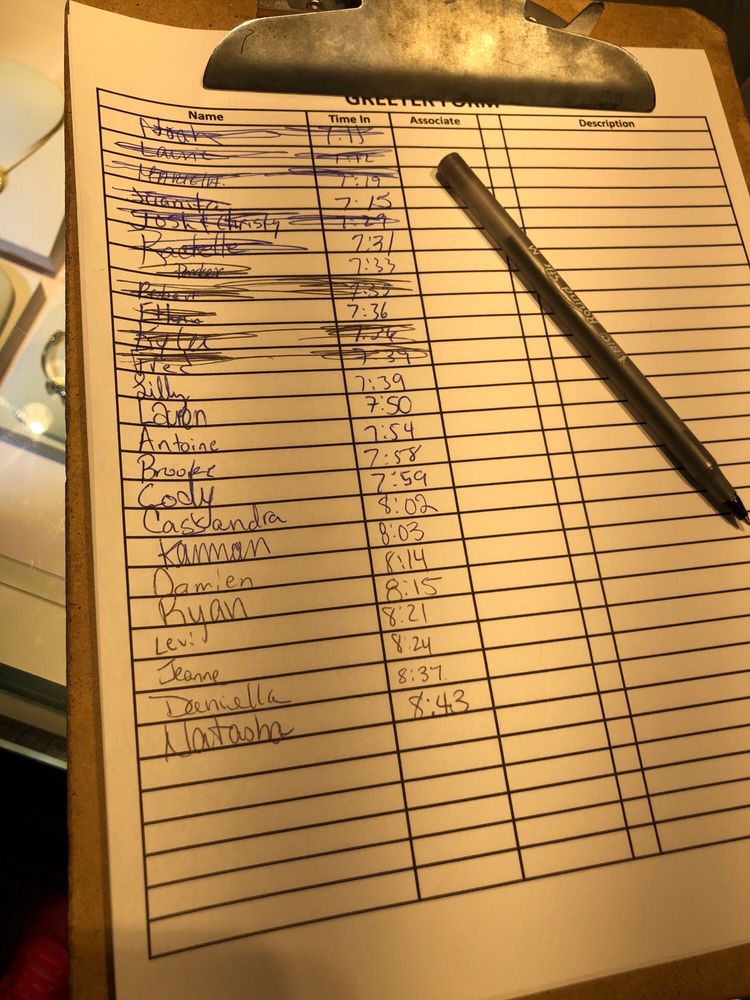 GREETER FORM
Name Time In Associate Description
Noah 7:15
Laurie 7:12
7:19
Juanita 7:15
Josh & Christy 7:29
Rachelle 7:31
Parker 7:33
Robert 7:35
Ethan 7:36
Kyler
Fred 7:39
Lilly 7:39
Laron 7:50
Antoine 7:54
Brooke 7:58
Cody 7:59
Cassandra 8:02
Karman 8:03
Damien 8:14
Ryan 8:15
Levi 8:21
Jeanne 8:24
Daniella 8:37
Natasha 8:43
BIC Round Stic M